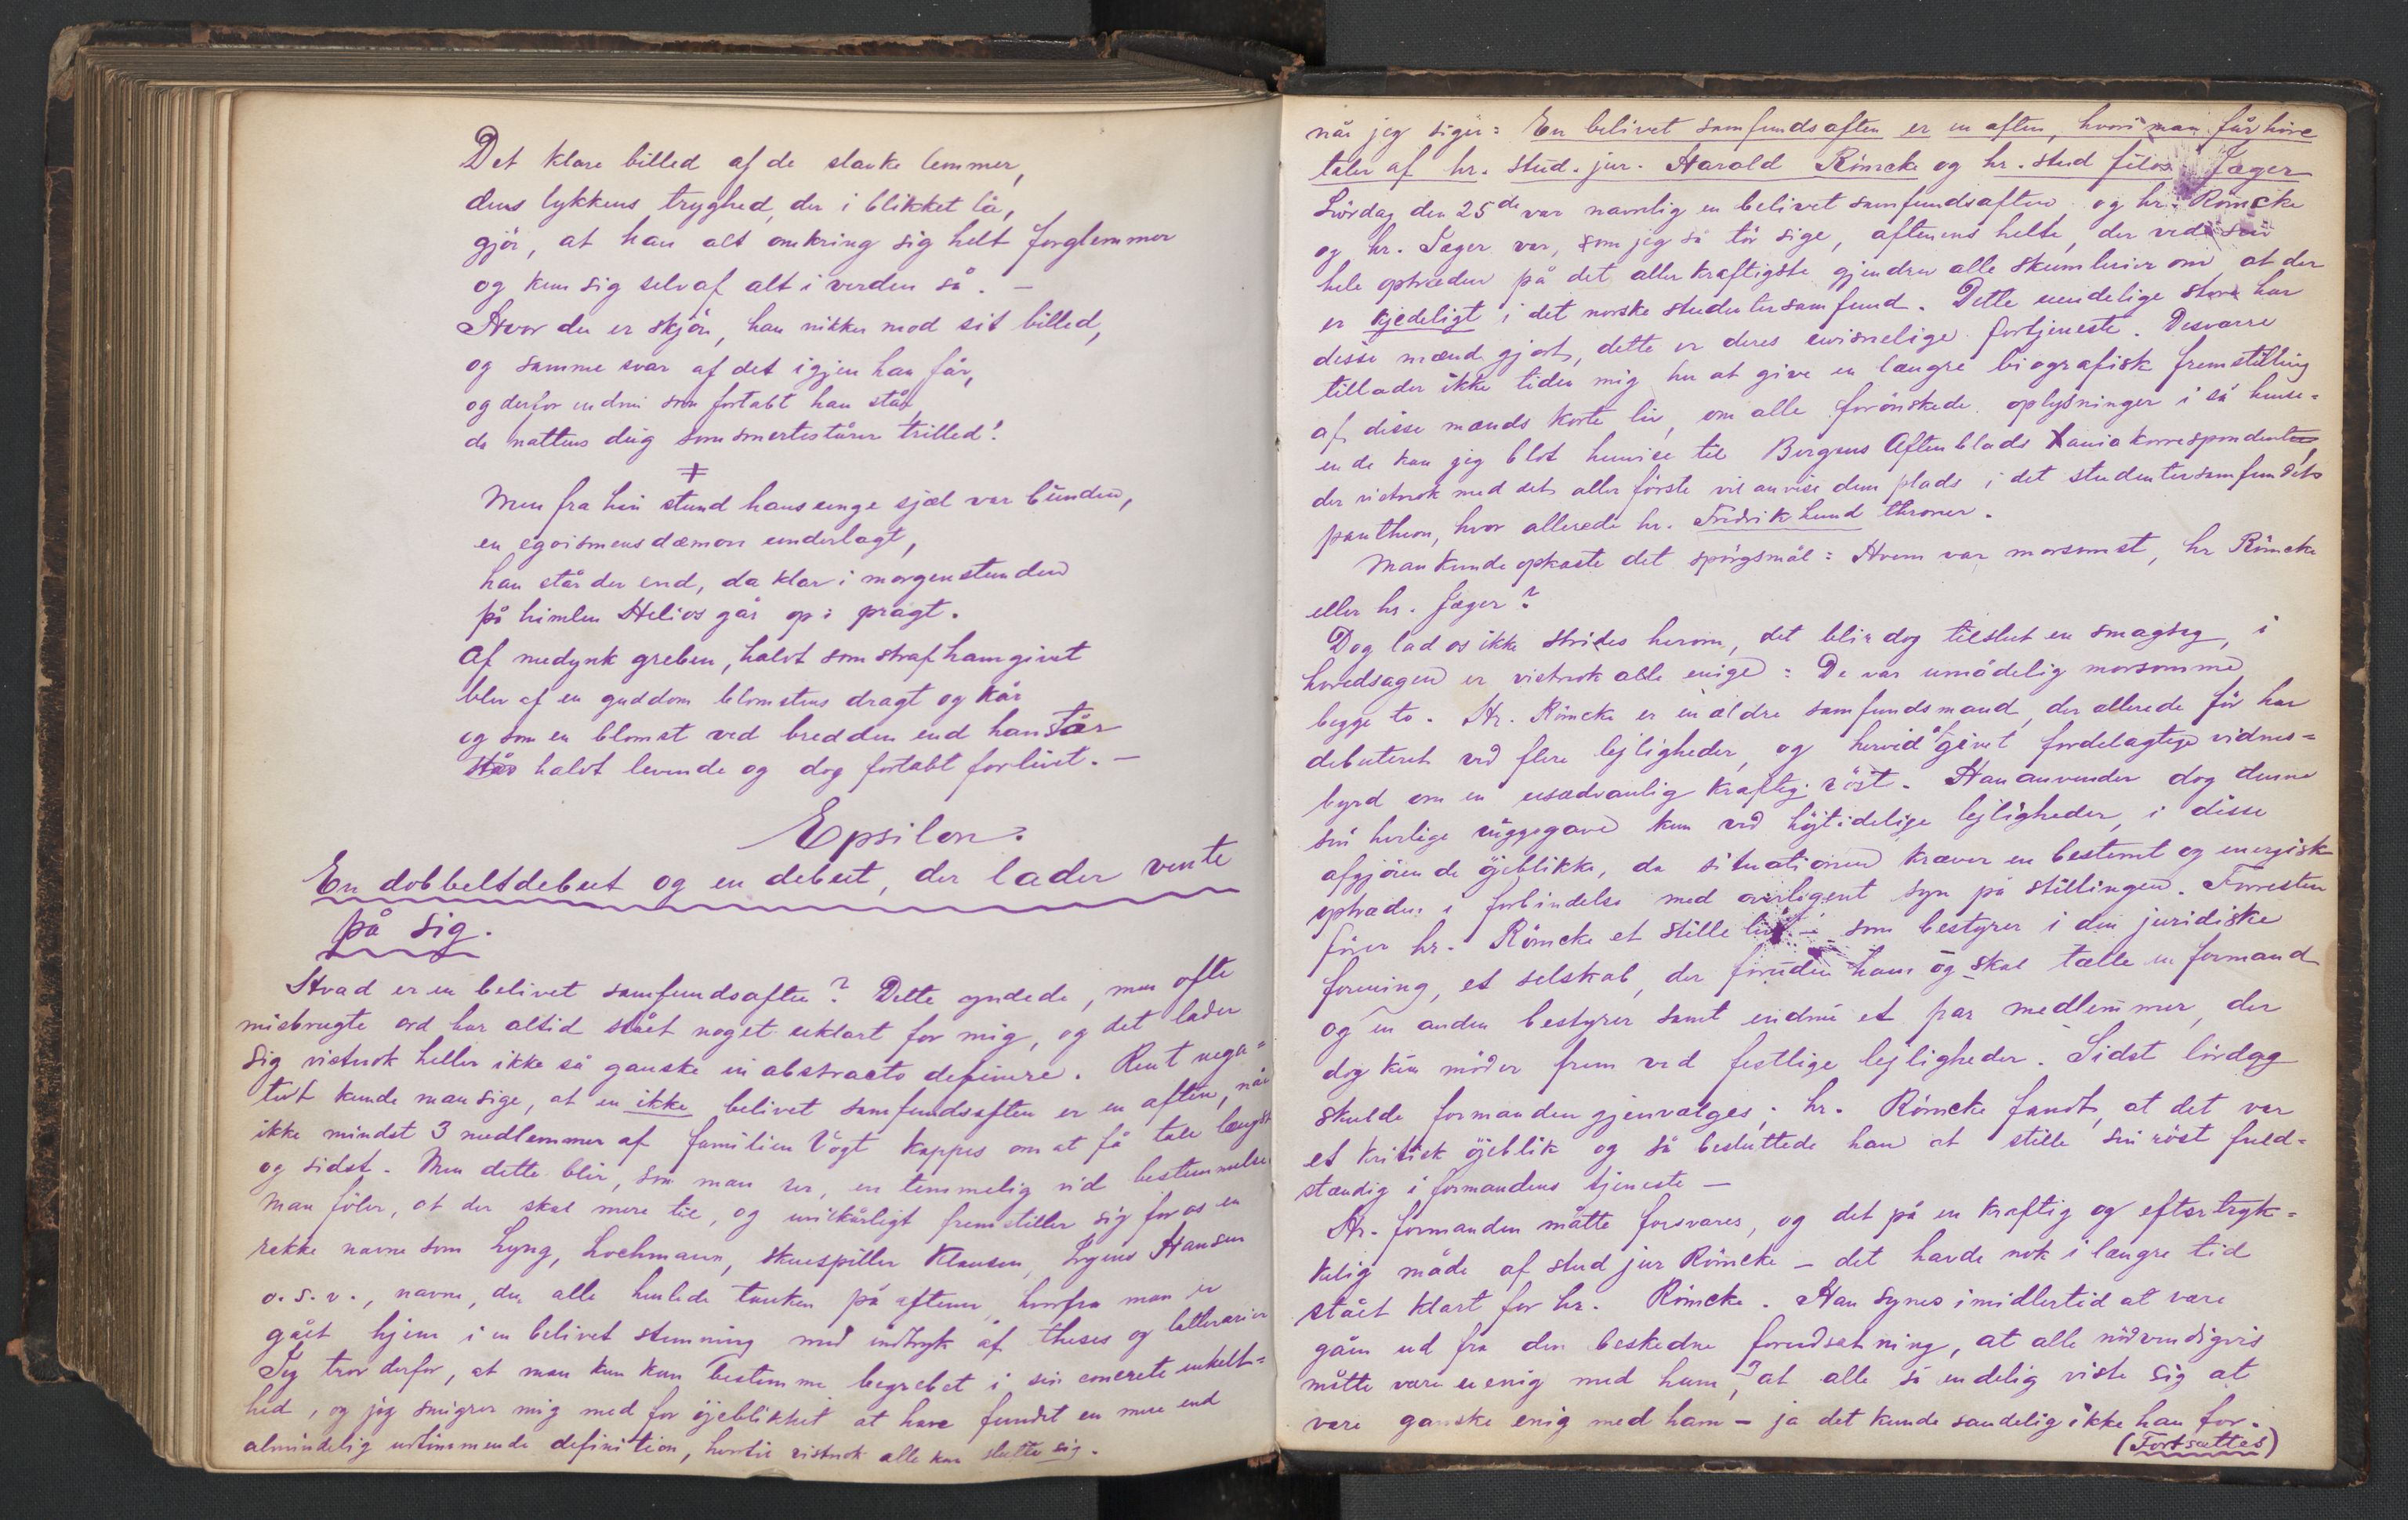 Det klare billed af de slanke lemmer,
dens lykkens tryghed, der i blikket lå,
gjör, at han alt omkring sig helt forglemmer
og kun sig selv af alt i verden så. —
Hvor du er skjön, han nikker mod sit billed,
og samme svar af det igjen han får,
og derfor endnu som fortabt han står,
da nattens dug som smertestårer trilled!
+
Men fra hin stund hans unge sjæl var bunden,
en egoismens dæmon underlagt,
han står der end, da klar i morgenstunden
på himlen Helios går op i pragt.
Af medynk greben, halvt som straf ham givet
blev af en guddom blomstens dragt og kår
og som en blomst ved bredden end han står
halvt levende og dog fortabt for livet. —
Epsilon.
En dobbeltdebut og en debut, der lader vente
på sig.
Hvad er en belivet samfundsaften? Dette yndede, men ofte
misbrugte ord har altid stået noget uklart for mig, og det lader
sig vistnok heller ikke så ganske in abstracto definere. Rent nega-
tivt kunde man sige, at en ikke belivet samfundsaften er en aften, når
ikke mindst 3 medlemmer af familien Vogt kappes om at få tale længst
og sidst. Men dette blir, som man ser, en temmelig vid bestemmelse
man föler, at der skal mere til, og uvilkårligt fremstiller sig for os en
række navne som Lyng, Lochmann, skuespiller Klausen, Hansen
o. s. v., navne, der alle henlede tanken på aftener, hvorfra man er
gået hjem i en belivet stemning med indtryk af theses og
Jeg tror derfor, at man kun kan bestemme begrebet i sin concrete enkelt-
hed, og jeg smigrer mig med for öjeblikket at have fundet en mere end
almindelig udtömmende definition, hvortil vistnok alle kan slutte sig.
når jeg siger: En belivet samfundsaften er en aften, hvori man får höre
taler af hr. stud. jur. Harald Römcke og hr. stud filos Jæger
Lördag den 25de var navnlig en belivet samfundsaften og hr. Römcke
og hr. Jæger var, som jeg så tör sige, aftenens helte, der ved sin
hele optræden på det aller kraftigste gjendrev alle skumlerier om, at der
er kjedeligt i det norske studentersamfund. Dette uendelige store har
disse mænd gjort, dette er deres uvisnelige fortjeneste. Desværre
tillader ikke tiden mig her at give en længre biografisk fremstilling
af disse mænds korte liv, om alle forönskede oplysninger i så hense-
ende kan jeg blot henvise til Bergens Aftenblads Xaniakorrespondent,
der vistnok med det aller förste vil anvise dem plads i det studentersamfundets
pantheon, hvor allerede hr. Fredrik Lund throner.
Man kunde opkaste det spörgsmål: Hvem var morsomst, hr Römcke
eller hr. Jæger?
Dog lad os ikke strides herom, det blir dog tilslut en smagsag, i
hovedsagen er vistnok alle enige: De var umådelig morsomme
begge to. Hr. Römcke er en ældre samfundsmand, der allerede för har
debuteret ved flere lejligheder, og herved givet fordelagtige vidnes-
byrd om en usædvanlig kraftig röst. Han anvender dog denne
sin herlige någgegave kun ved höjtidelige lejligheder, i disse
afgjörende öjeblikke, da situationen kræver en bestemt og energisk
optræden i forbindelse med overlegent syn på stillingen. Forresten
förer hr. Römcke et stille liv – som bestyrer i den juridiske
forening, et selskab, der foruden ham og skal tælle en formand
og en anden bestyrer samt endnu et par medlemmer, der
dog kun möder frem ved festlige lejligheder. Sidst lördag
skulde formanden gjenvælges; hr. Römcke fandt, at det var
et kritisk öjeblik og så besluttede han at stille sin röst fuld-
stændig i formandens tjeneste —
Hr. formanden måtte forsvares, og det på en kraftig og eftertryk-
kelig måde af stud jur Römcke – det havde nok i længre tid
stået klart for hr. Römcke. Han synes imidlertid at være
gåen ud fra den beskedne forudsætning, at alle nödvendigvis
måtte være uenig med ham, at alle så endelig viste sig at
være ganske enig med ham – ja det kunde sandelig ikke han for.
(Fortsættes)